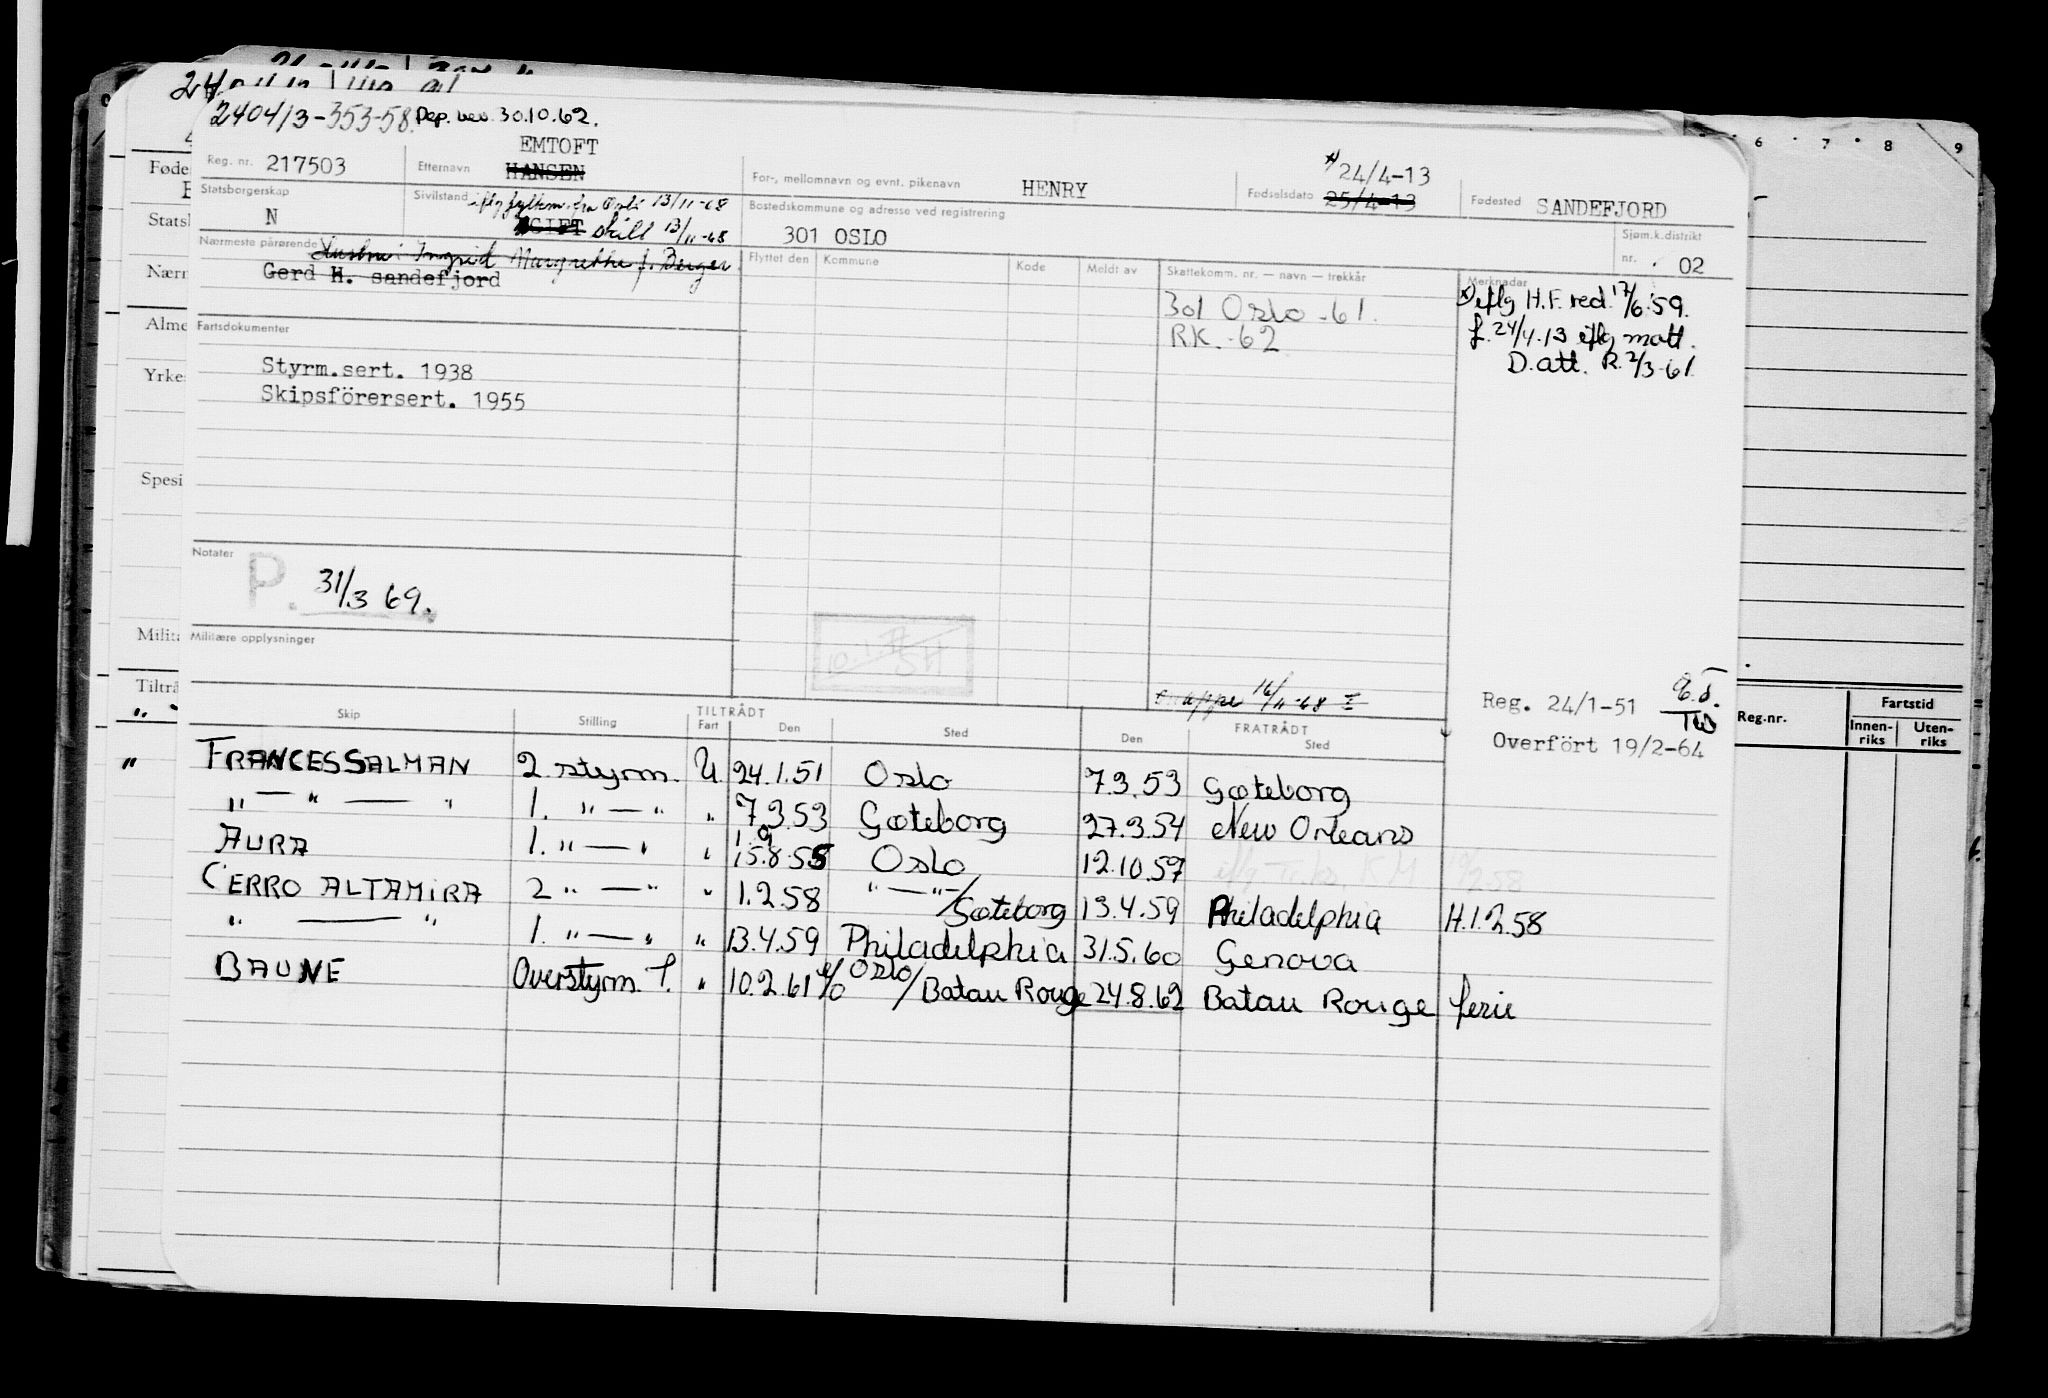 240413-353-58. Dep. bev. 30.10.62.
EMTOFT
Reg. nr. 217503 Etternavn HANSEN For-, mellomnavn og evnt. pikenavn HENRY Fødselsdato 24/4-13 25/4-13 Fødested SANDEFJORD
Statsborgerskap N Sivilstand fra Oslo 13/11-68 GIFT skilt 13/11-68 Bostedskommune og adresse ved registrering 301 OSLO Sjøm.k.distrikt nr. 02
Nærmeste pårørende Hustru: Ingrid Margrethe f. Berger
Gerd H. sandefjord
Flyttet den Kommune Kode Meldt av Skattekomm. nr. — navn — trekkår Merknader
301 Oslo -61.
RK. -62
eflg H.F. red. 17/6-59.
f. 24/4-13 eflg mott.
D. att. R. 2/3-61
Fartsdokumenter
Styrm.sert. 1938
Skipsförersert. 1955
Notater
P. 31/3 69.
Militære opplysninger
16/11-68
Reg. 24/1-51
Overfört 19/2-64
Skip Stilling TILTRÅDT Fart Den Sted FRATRÅDT Den Sted
FRANCES SALMAN 2. styrm. U. 24.1.51 Oslo 7.3.53 Gøteborg
" — " — " 1. " — " " 7.3.53 Gøteborg 27.3.54 New Orleans
AURA 1. " — " " 15.8.55 Oslo 12.10.57
CERRO ALTAMIRA 2 " — " " 1.2.58 " — " — / Gøteborg 13.4.59 Philadelphia H.1.2.58
" — " 1. " — " " 13.4.59 Philadelphia 31.5.60 Genova
BAUNE Overstyrm. " 10.2.61 Oslo / Batau Rouge 24.8.62 Batau Rouge ferie
Føde
Statsb
Nærn
Alme
Yrke
Spesi
Milita
Tiltrå
6 7 8 9
Reg.nr. Fartstid
Innen-riks Uten-riks